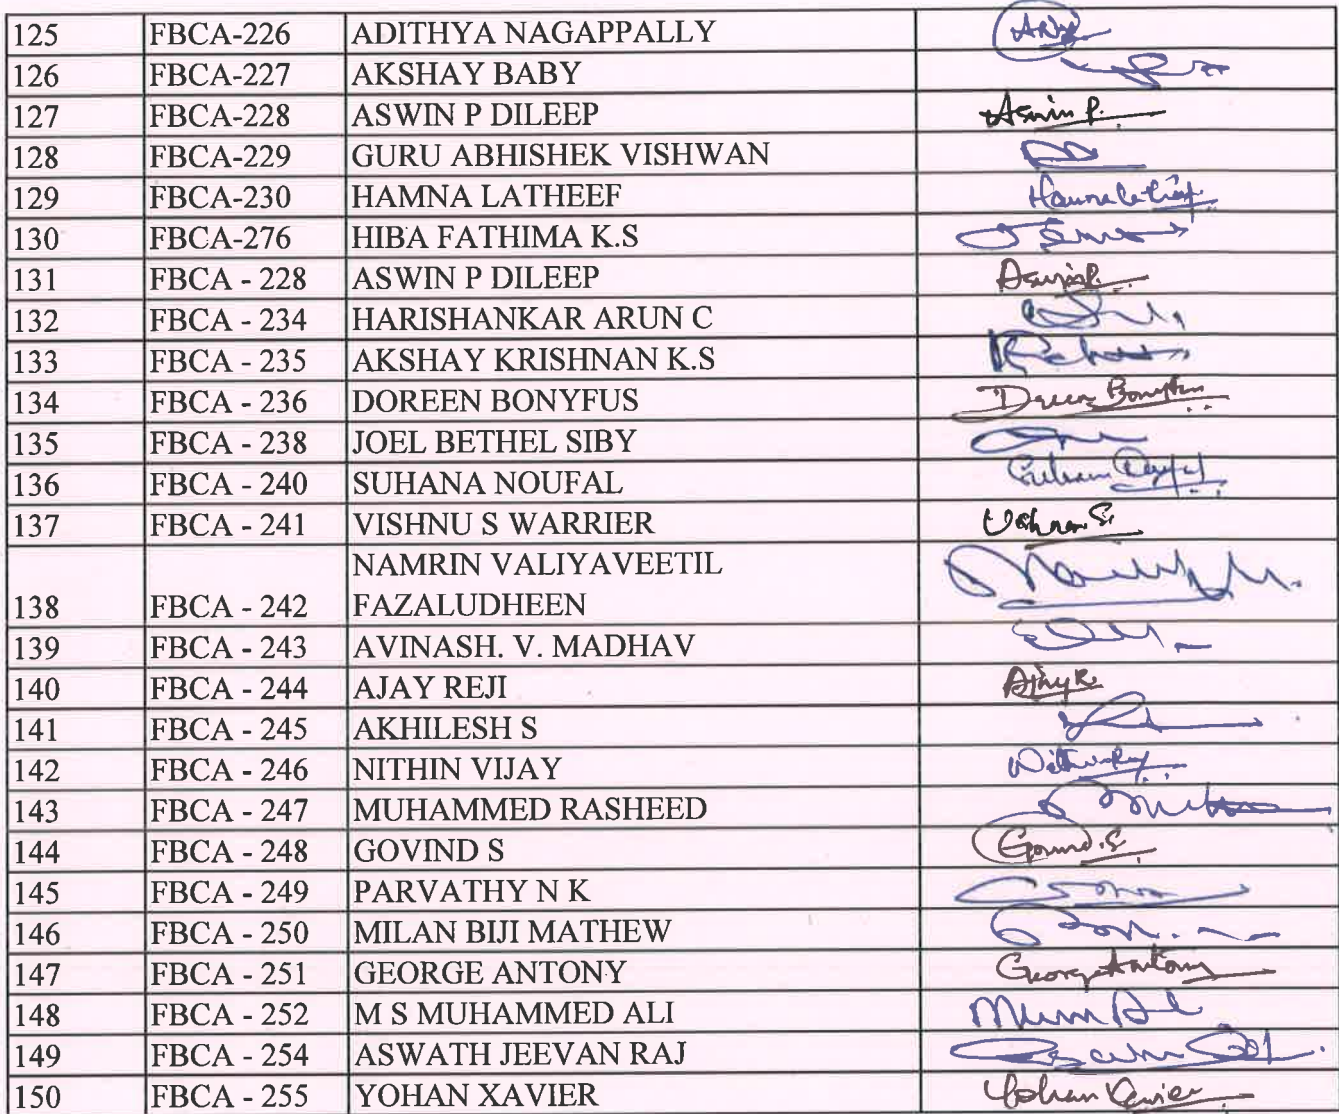 125 FBCA-226 ADITHYA NAGAPPALLY
126 FBCA-227 AKSHAY BABY
127 FBCA-228 ASWIN P DILEEP Aswin P.
128 FBCA-229 GURU ABHISHEK VISHWAN
129 FBCA-230 HAMNA LATHEEF
130 FBCA-276 HIBA FATHIMA K.S
131 FBCA - 228 ASWIN P DILEEP
132 FBCA - 234 HARISHANKAR ARUN C
133 FBCA - 235 AKSHAY KRISHNAN K.S
134 FBCA - 236 DOREEN BONYFUS
135 FBCA - 238 JOEL BETHEL SIBY
136 FBCA - 240 SUHANA NOUFAL
137 FBCA - 241 VISHNU S WARRIER
NAMRIN VALIYAVEETIL
138 FBCA - 242 FAZALUDHEEN
139 FBCA - 243 AVINASH. V. MADHAV
140 FBCA - 244 AJAY REJI Ajay R.
141 FBCA - 245 AKHILESH S
142 FBCA - 246 NITHIN VIJAY
143 FBCA - 247 MUHAMMED RASHEED
144 FBCA - 248 GOVIND S Govind.S
145 FBCA - 249 PARVATHY N K
146 FBCA - 250 MILAN BIJI MATHEW
147 FBCA - 251 GEORGE ANTONY George Antony
148 FBCA - 252 M S MUHAMMED ALI
149 FBCA - 254 ASWATH JEEVAN RAJ
150 FBCA - 255 YOHAN XAVIER Yohan Xavier